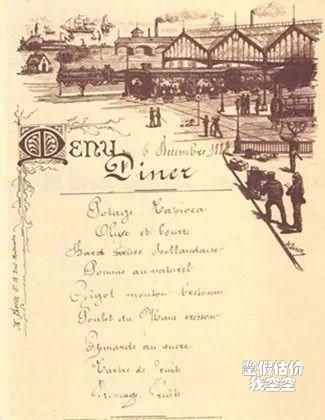 MENU
6 Decembre
Diner
Potage Tapioca
Olives et beurre
Sauce Hollandaise
Pommes au naturel
Gigot mouton bretonne
Poulet du Mans cresson
Epinards au sucre
Tartre de fruits
Fromage, Fruits
鉴假估价
找空空